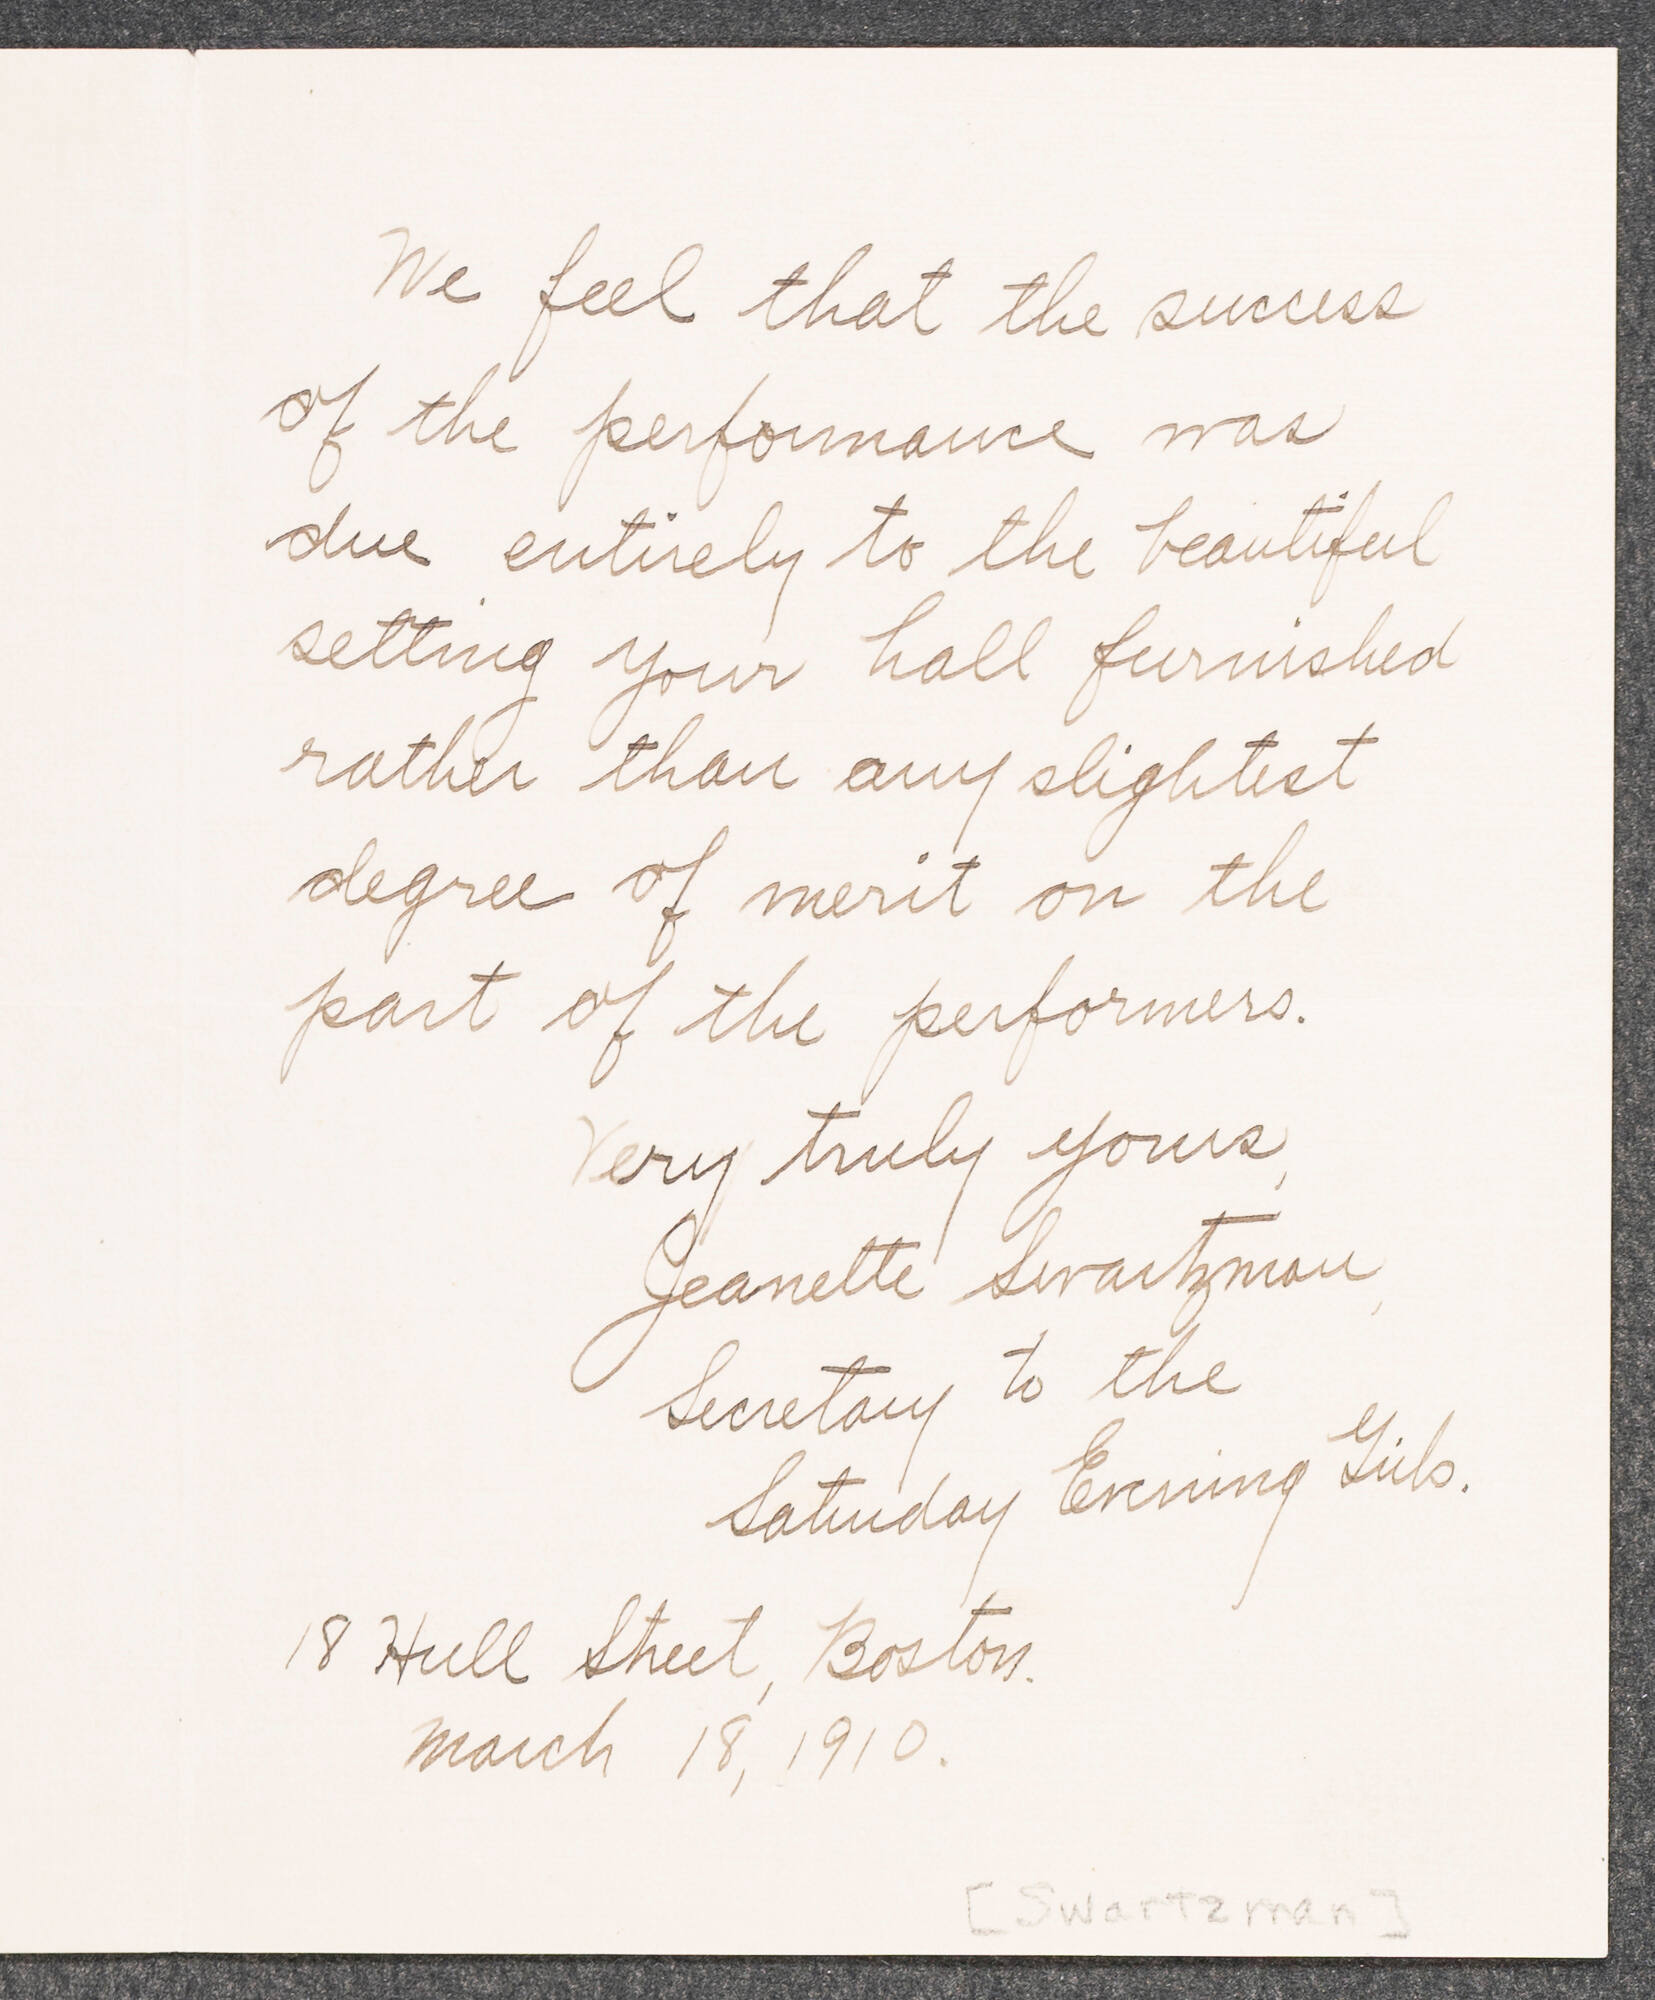 We feel that the success
of the performance was
due entirely to the beautiful
setting your hall furnished
rather than any slightest
degree of merit on the
part of the performers.
Very truly yours,
Jeanette Swartzman,
Secretary to the
Saturday Evening Girls.
18 Hull Street, Boston.
March 18, 1910.
[Swartzman]